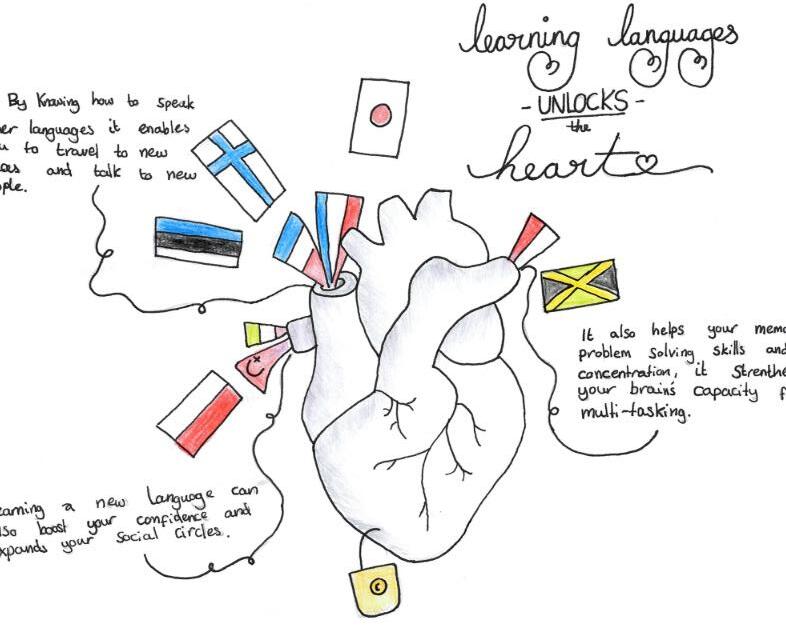 learning languages
- UNLOCKS -
the
heart
By Knowing how to speak
er languages it enables
u to travel to new
and talk to new
ple.
It also helps your memo
problem solving skills and
concentration, it Strenthe
your brain's capacity f
multi-tasking.
earning a new Language can
lso boost your confidence and
xpands your Social Circles.